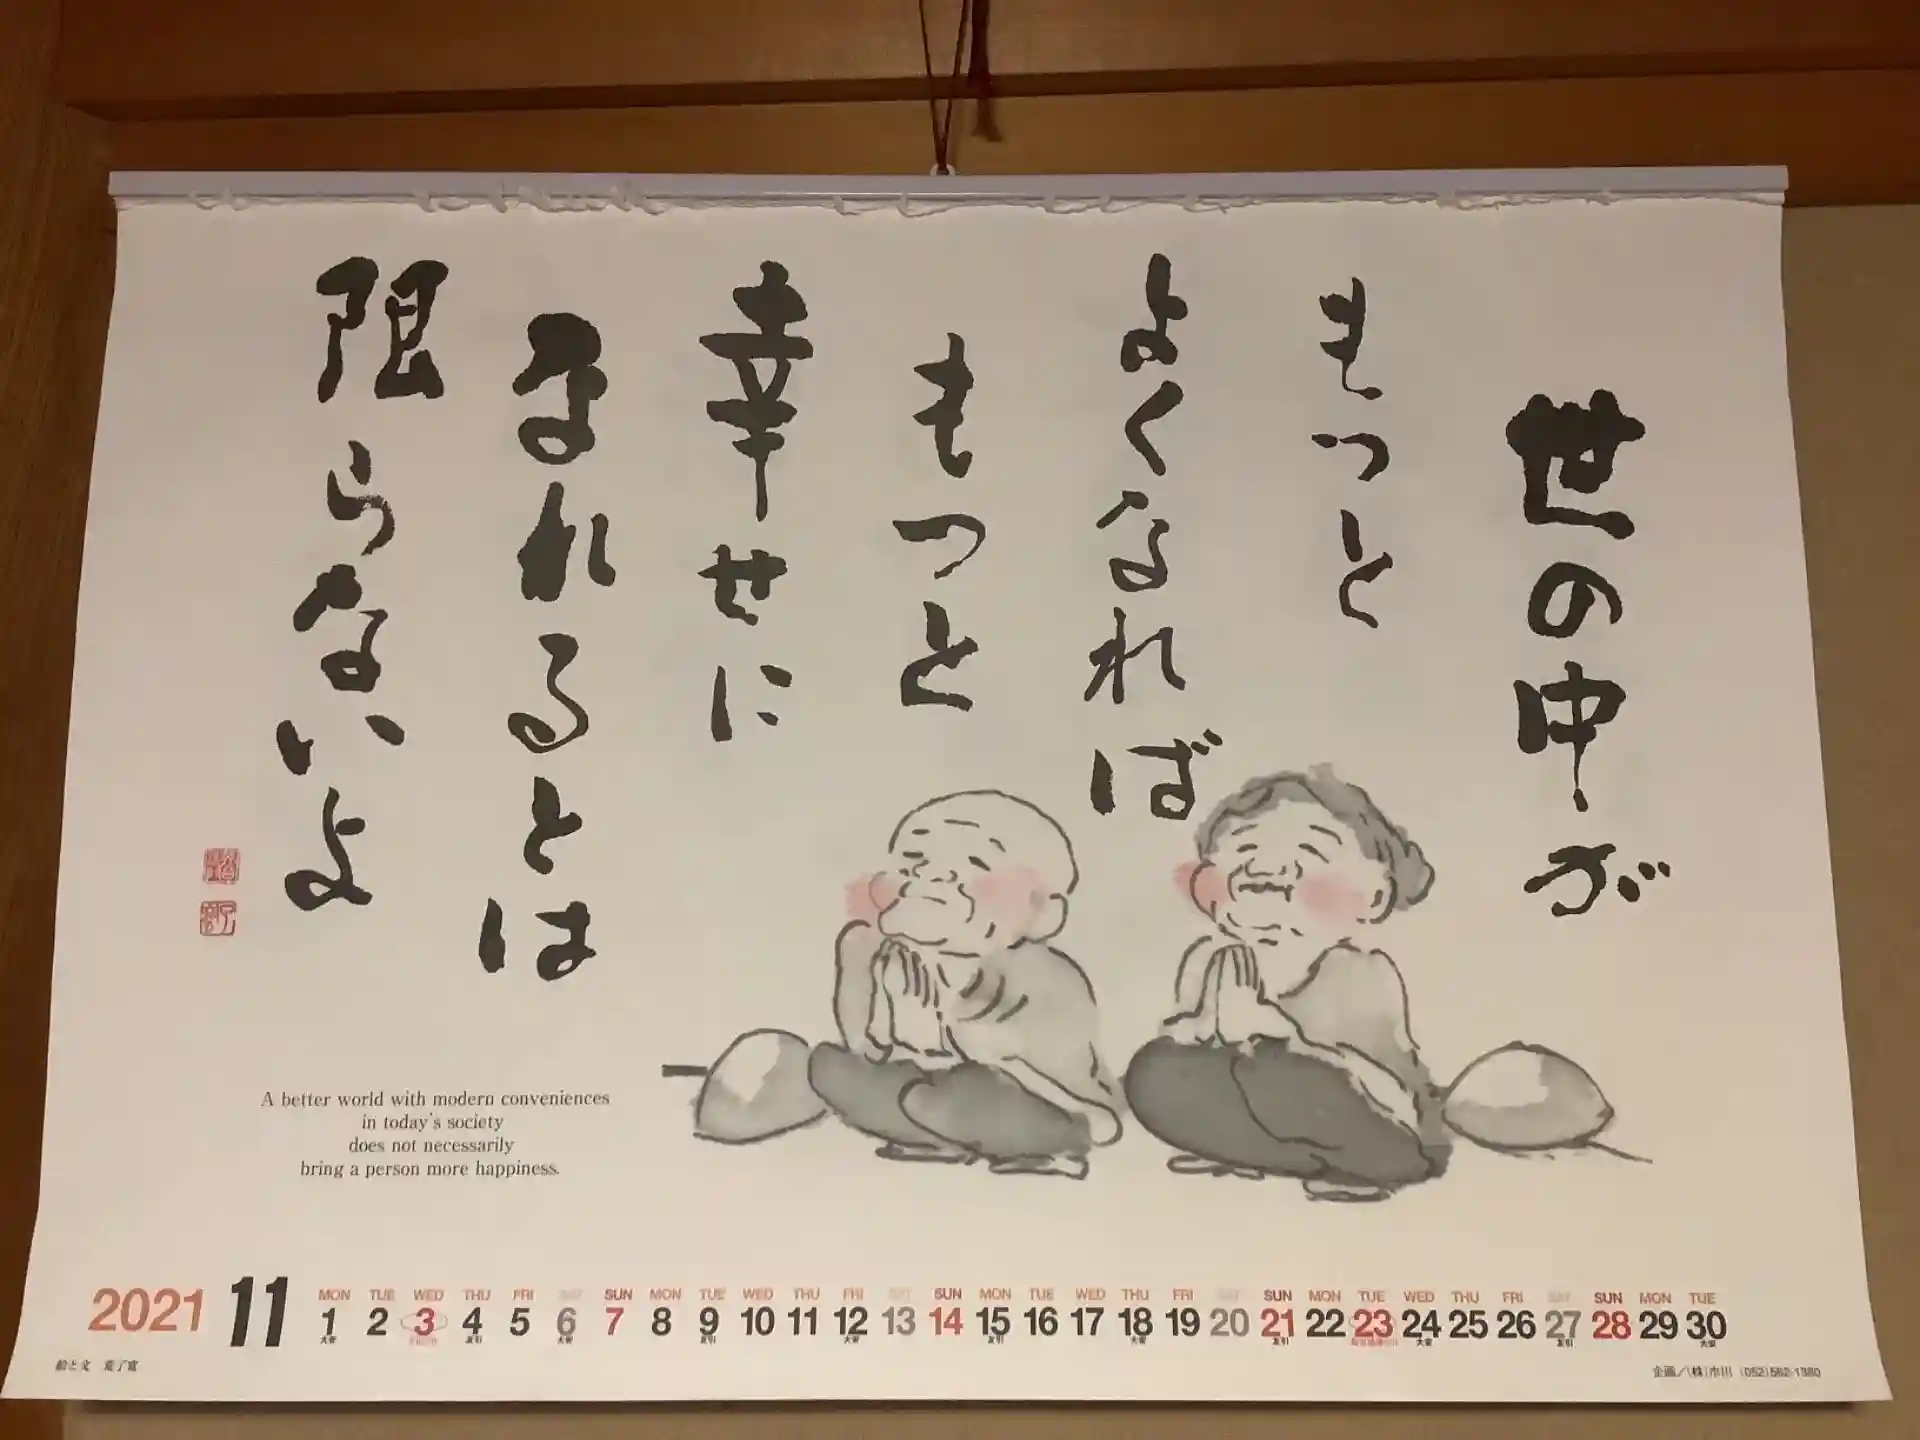 世の中が
もっと
よくなれば
もっと
幸せに
なれるとは
限らないよ
A better world with modern conveniences
in today's society
does not necessarily
bring a person more happiness.
2021 11
MON TUE WED THU FRI SAT SUN MON TUE WED THU FRI SAT SUN MON TUE WED THU FRI SAT SUN MON TUE WED THU FRI SAT SUN MON TUE
1 2 3 4 5 6 7 8 9 10 11 12 13 14 15 16 17 18 19 20 21 22 23 24 25 26 27 28 29 30
大安 文化の日 友引 大安 友引 大安 友引 大安 友引 勤労感謝の日 大安 友引 大安
絵と文
企画/(株)市川 (052)562-1380